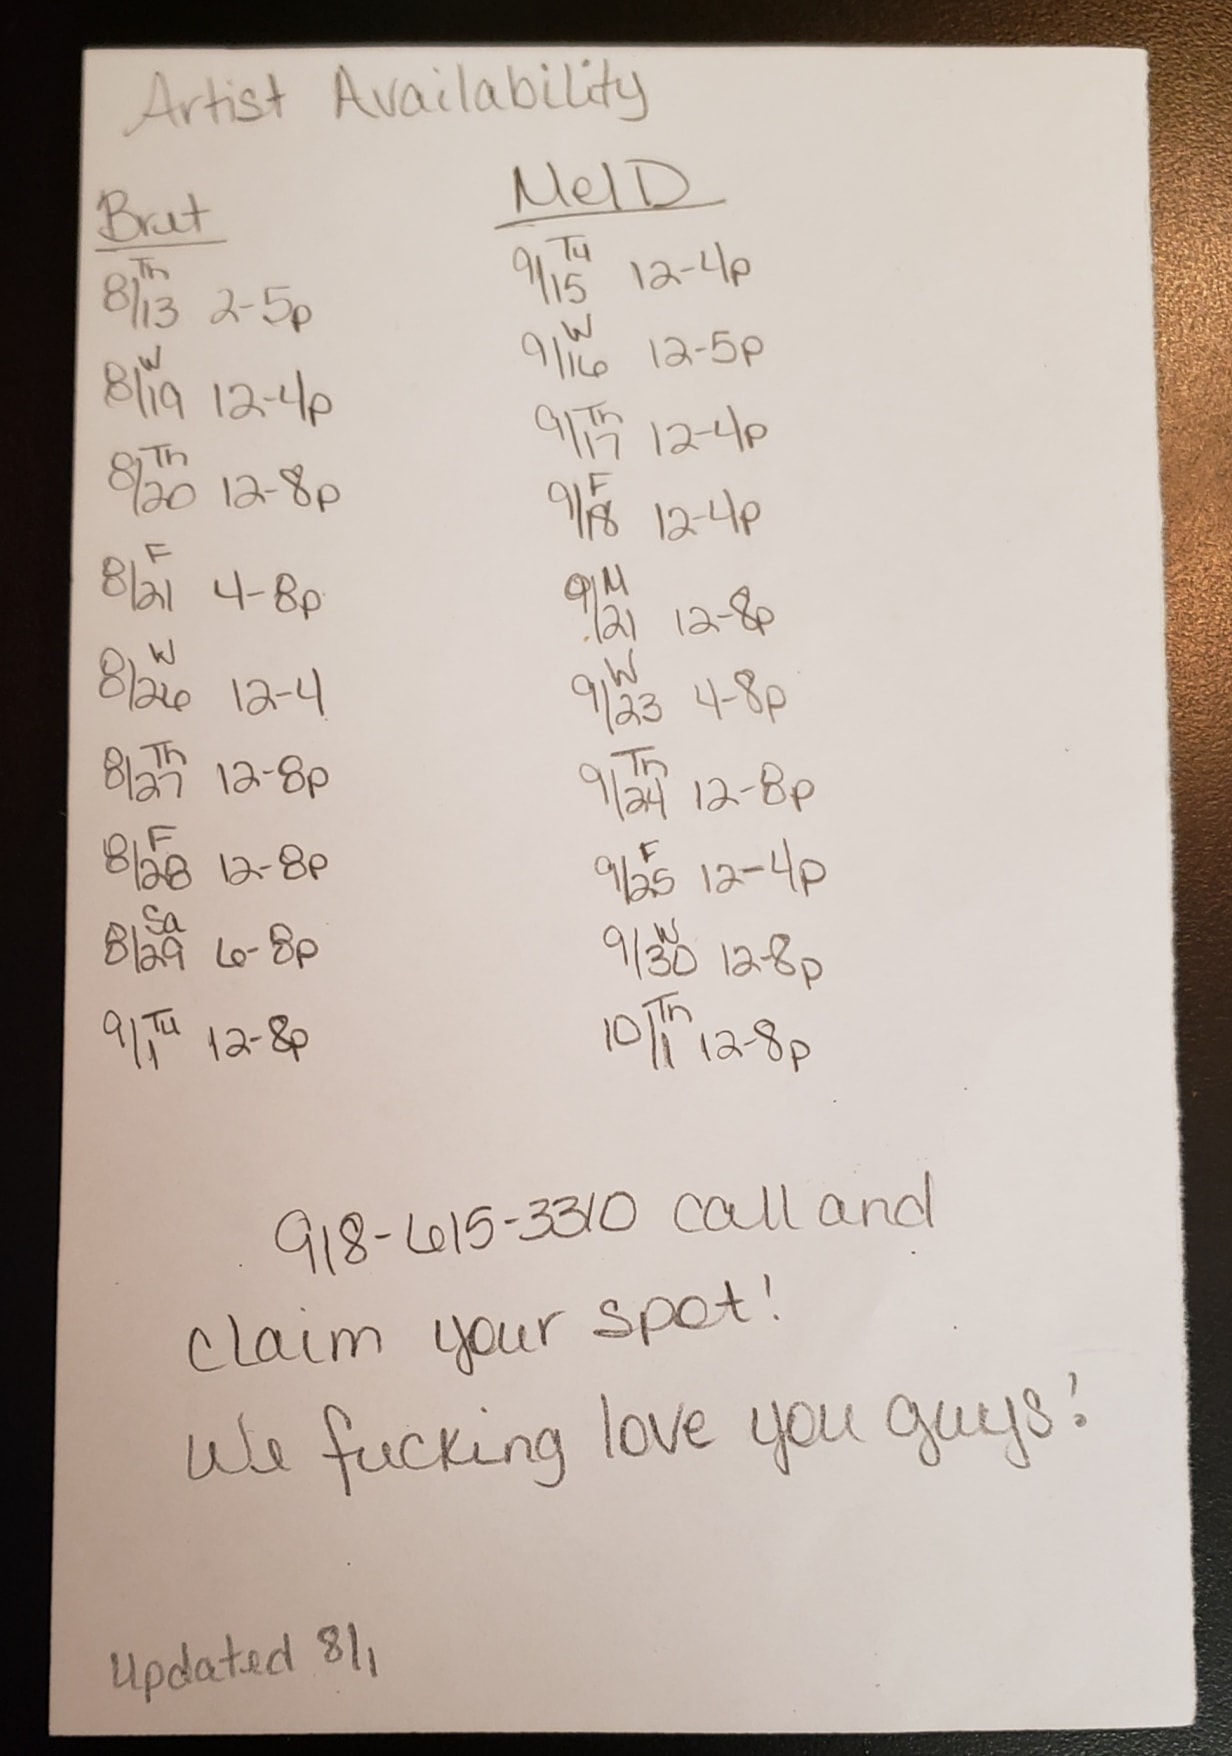 Artist Availability
Brat
8/13 Th 2-5p
8/19 W 12-4p
8/20 Th 12-8p
8/21 F 4-8p
8/26 W 12-4
8/27 Th 12-8p
8/28 F 12-8p
8/29 Sa 6-8p
9/1 Tu 12-8p
Mel D
9/15 Tu 12-4p
9/16 W 12-5p
9/17 Th 12-4p
9/18 F 12-4p
9/21 M 12-8p
9/23 W 4-8p
9/24 Th 12-8p
9/25 F 12-4p
9/30 W 12-8p
10/1 Th 12-8p
918-615-3310 call and
claim your spot!
We fucking love you guys!
Updated 8/1